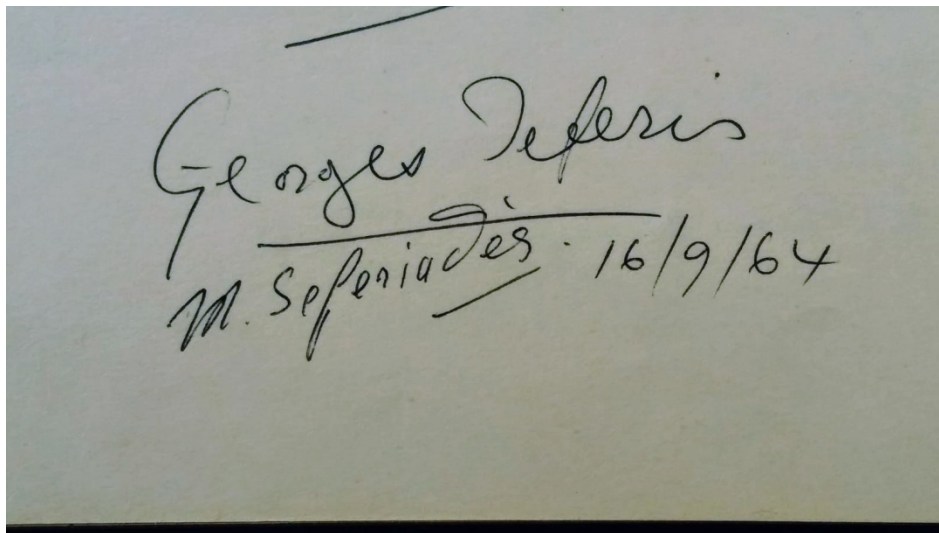 Georges Seferis
M. Seferiadès. 16/9/64